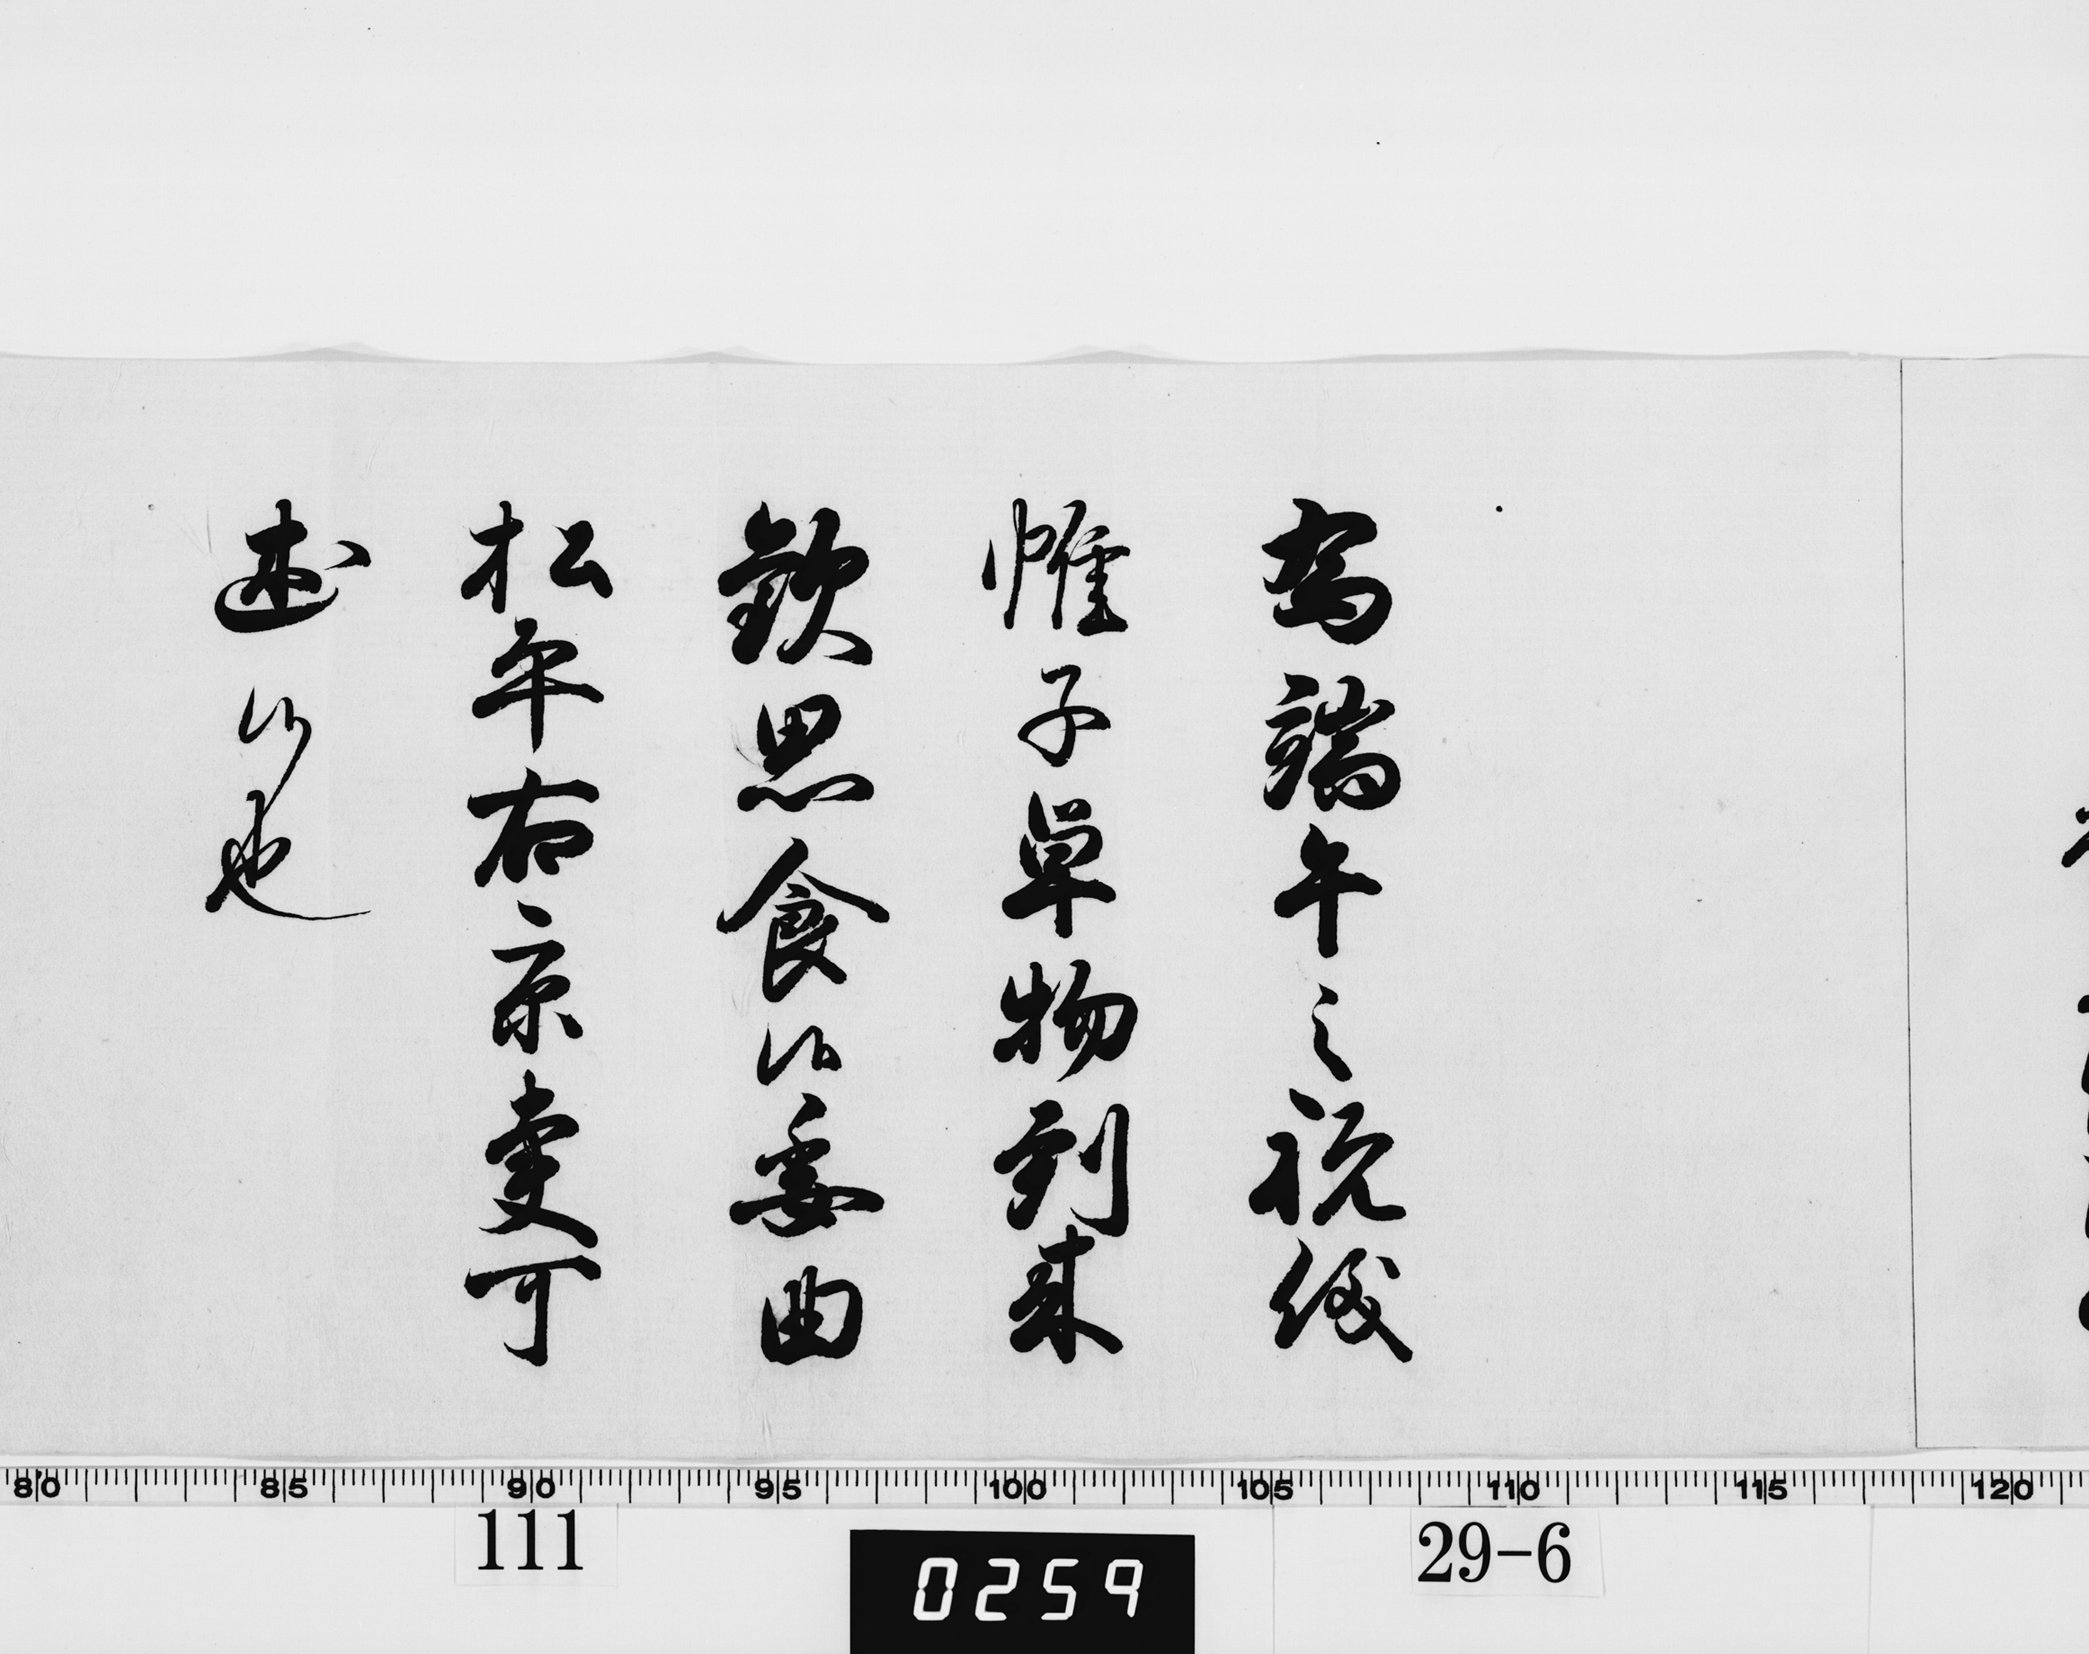 為端午之祝儀
帷子単物到来
歓思食候委曲
松平右京大夫可
述候也
80 85 90 95 100 105 110 115 120
111
0259
29-6